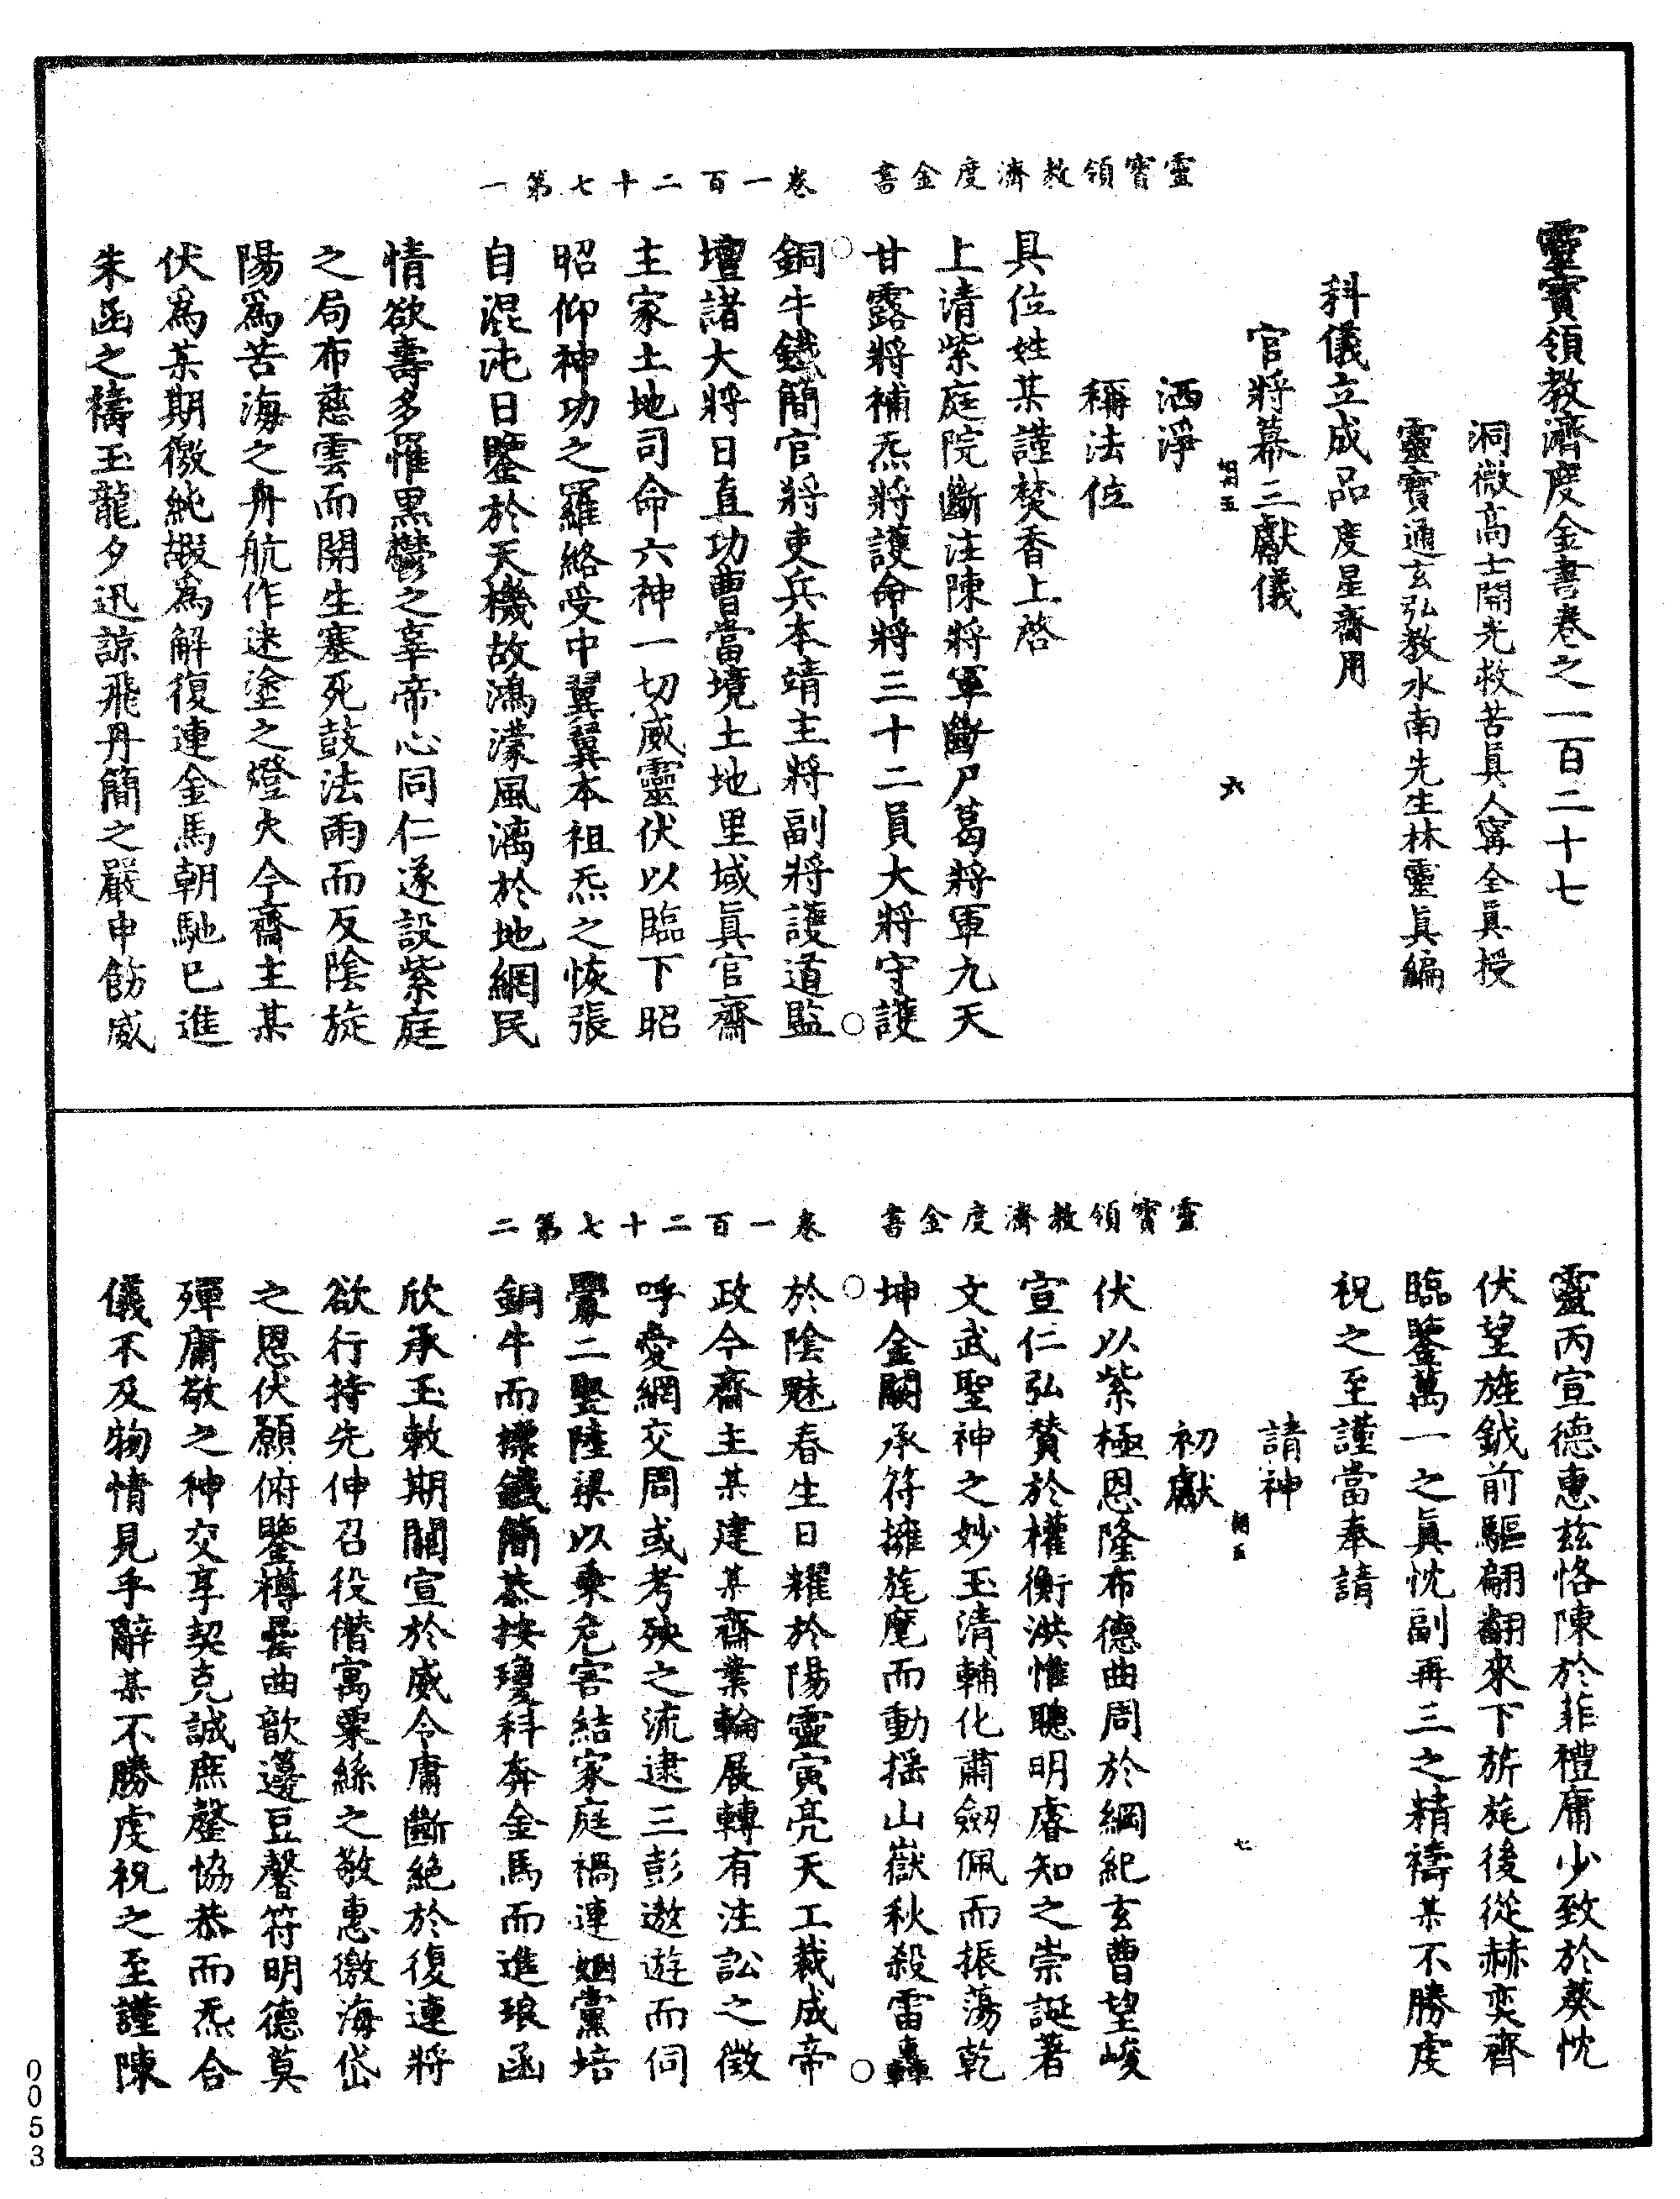 靈寶領教濟度金書卷之一百二十七
洞微高士開光救苦眞人甯全眞授
靈寶通玄弘教水南先生林靈眞編
科儀立成品度星齋用
官將幕三獻儀
六
洒淨
稱法位
具位姓某謹焚香上啓
上清紫庭院斷注陳將軍斷尸葛將軍九天
甘露將補炁將護命將三十二員大將守護
靈寶領教濟度金書 卷一百二十七第一
銅牛鐵簡官將吏兵本靖主將副將護道監
壇諸大將日直功曹當境土地里域眞官齋
主家土地司命六神一切威靈伏以臨下昭
昭仰神功之羅絡受中翼翼本祖炁之恢張
自混沌日鑒於天機故鴻濛風漓於地網民
情欲壽多罹黑鬱之辜帝心同仁遂設紫庭
之局布慈雲而開生塞死鼓法雨而反陰旋
陽爲苦海之舟航作迷塗之燈火今齋主某
伏爲某期徼純嘏爲解復連金馬朝馳已進
朱函之禱玉龍夕迅諒飛丹簡之嚴申飭威
靈丙宣德惠兹恪陳於菲禮庸少致於葵忱
伏望旌鉞前驅翩翻來下旂旄後從赫奕齊
臨鑒萬一之眞忱副再三之精禱某不勝虔
祝之至謹當奉請
請神
七
初獻
伏以紫極恩隆布德曲周於綱紀玄曹望峻
宣仁弘贊於權衡洪惟聰明睿知之崇誕著
文武聖神之妙玉清輔化肅劒佩而振蕩乾
坤金闕承符擁旄麾而動揺山嶽秋殺雷轟
靈寶領教濟度金書 卷一百二十七第二
於陰魅春生日耀於陽靈寅亮天工裁成帝
政今齋主某建某齋業輪展轉有注訟之徵
呼愛網交周或考殃之流逮三彭遨遊而伺
釁二豎陸梁以乗危害結家庭禍連姻黨培
銅牛而攝鐵簡恭按瓊科奔金馬而進琅函
欣承玉敕期關宣於威令庸斷絶於復連將
欲行持先伸召役僣寓粟絲之敬惠徼海岱
之恩伏願俯鑒樽罍曲歆籩豆馨符明德莫
殫庸敬之神交享契克誠庶罄協恭而炁合
儀不及物情見乎辭某不勝虔祝之至謹陳
0053